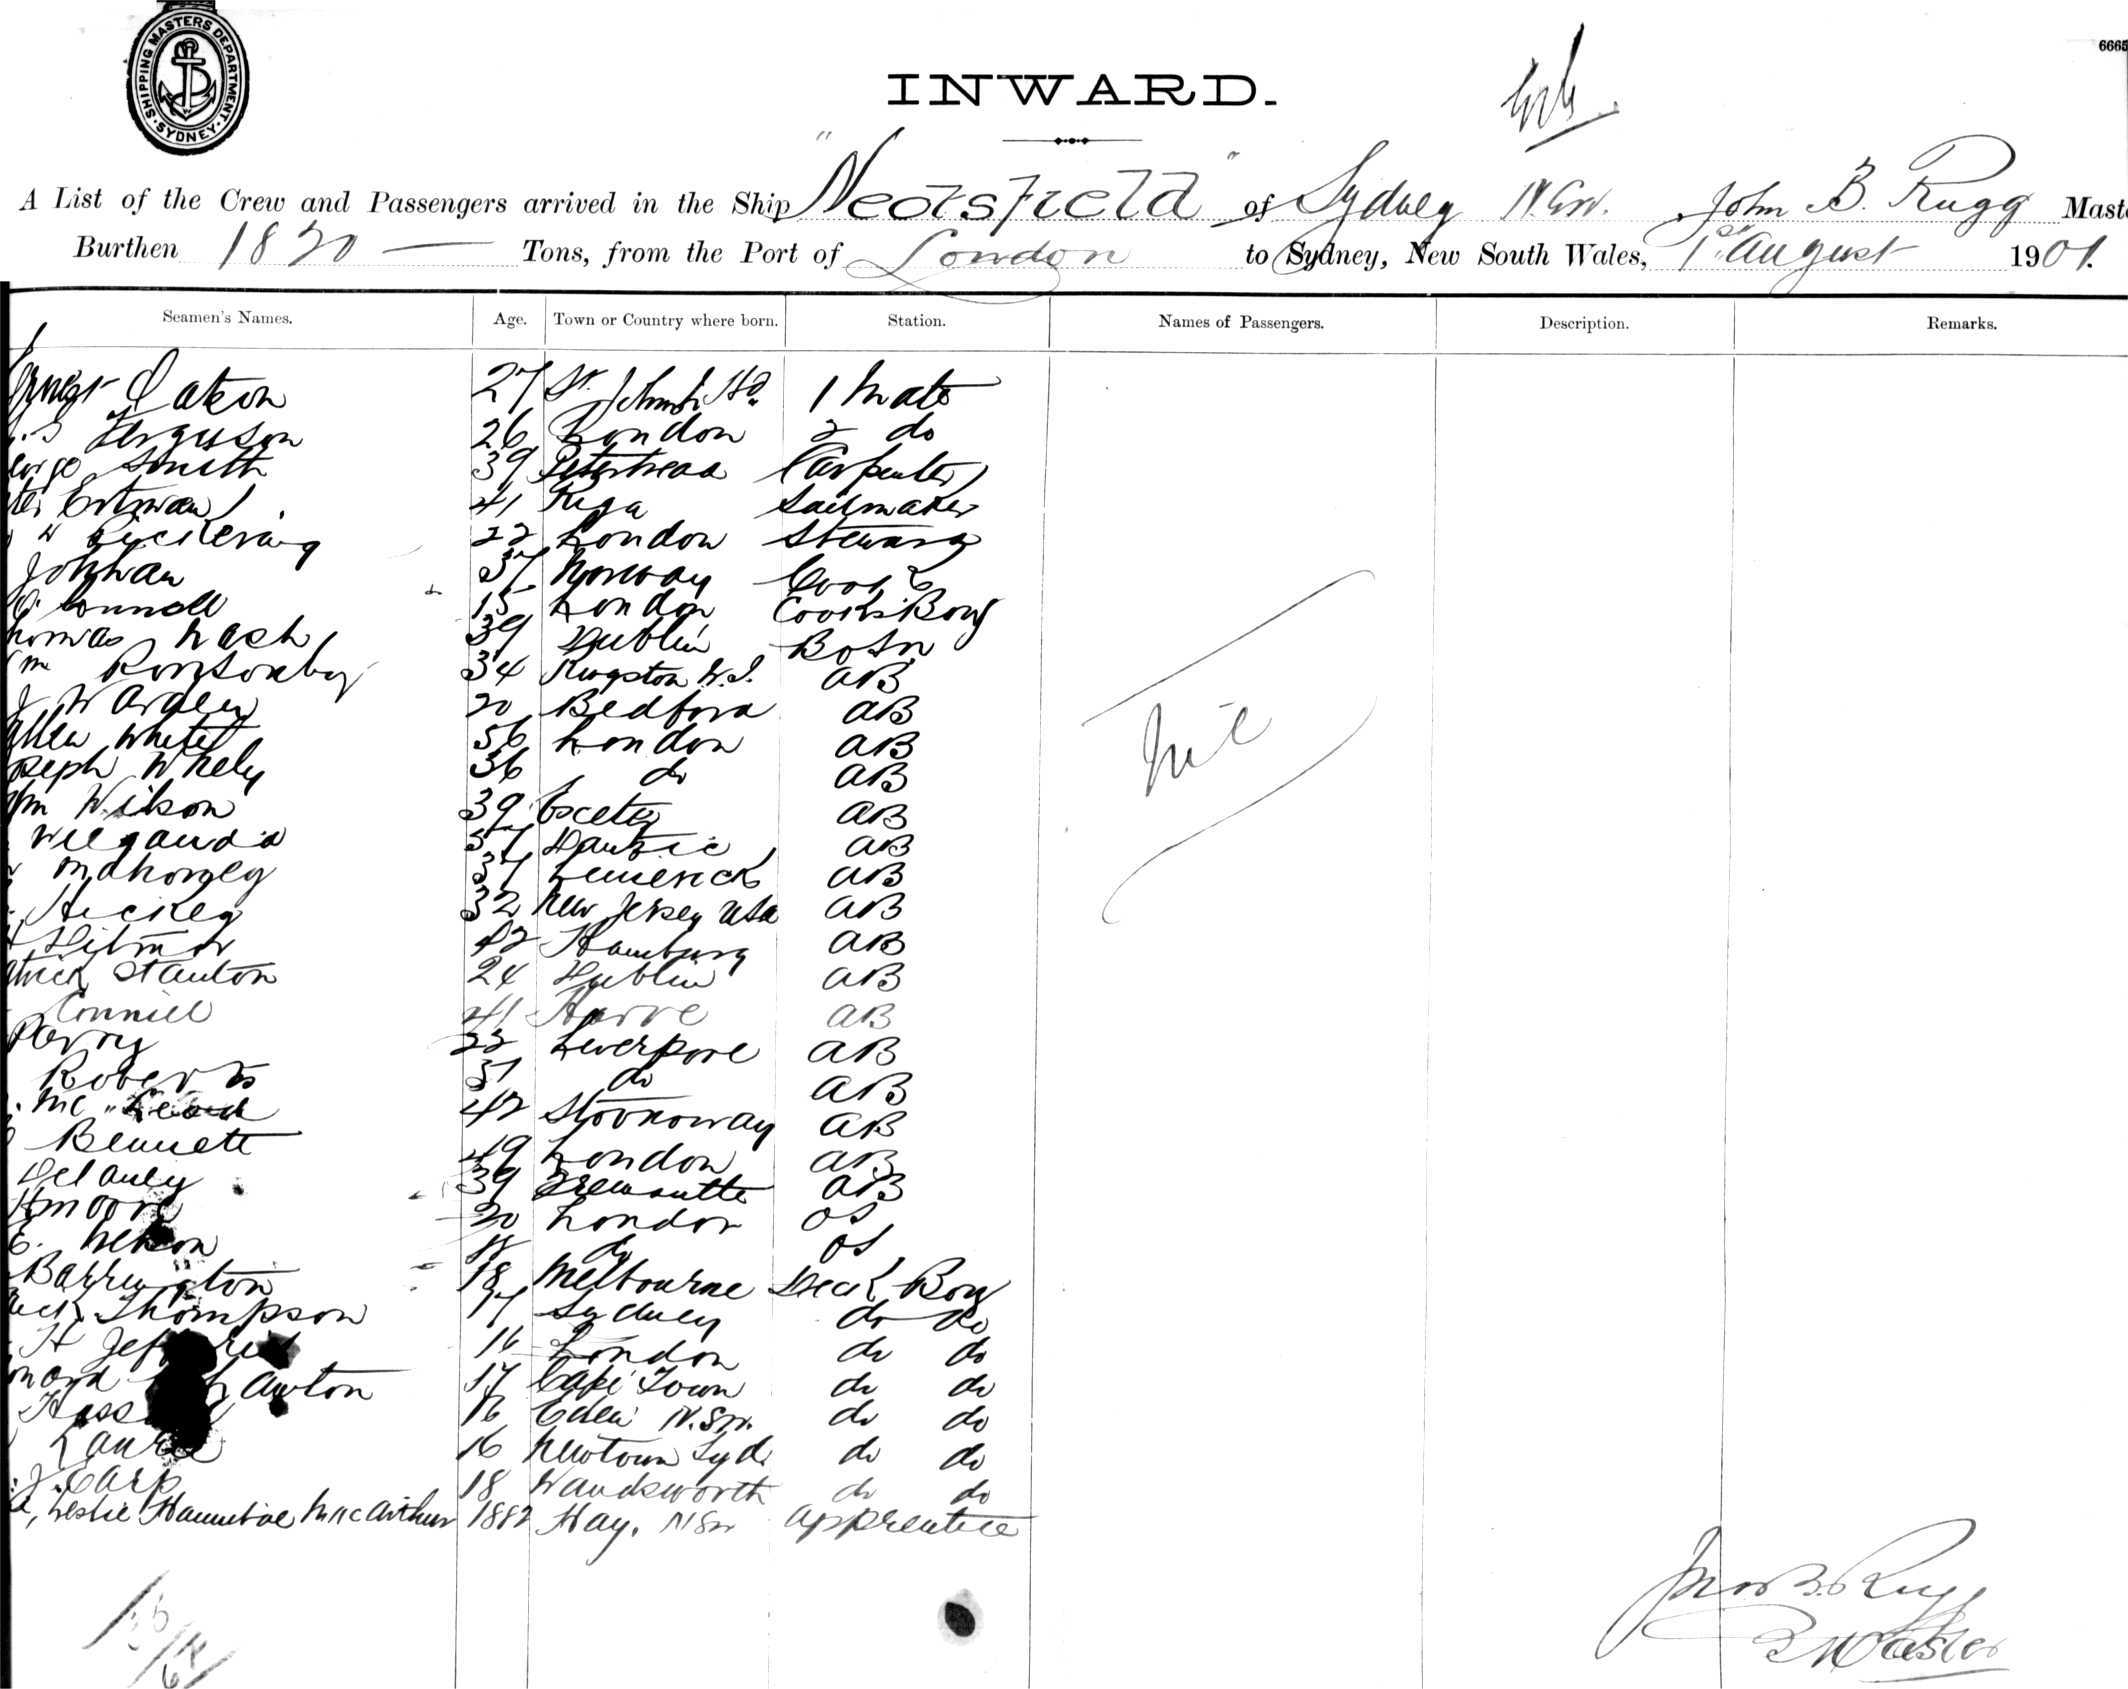 SHIPPING MASTERS DEPARTMENT. SYDNEY.
6665
INWARD.
A List of the Crew and Passengers arrived in the Ship "Neotsfield" of Sydney N.S.W. John B. Rugg Maste
Burthen 1820 Tons, from the Port of London to Sydney, New South Wales, 1st August 1901.
Seamen's Names. Age. Town or Country where born. Station. Names of Passengers. Description. Remarks.
27 St. 1 Mate
Ferguson 26 London 2 do
eorge Smith 39 Peterhead Carpenter
41 Riga Sailmaker
W Pickering 22 London Steward
37 Norway Cook
15 London Cooks Boy
homas Nash 39 Dublin Bosn
m 34 Kingston W.I. AB
J Warden 20 Bedford AB
Allen White 56 London AB
oseph Whely 36 do AB
Wilson 39 Exeter AB
Weegandd 57 Dantzic AB
Mahoney 37 Limerick AB
Hickey 32 New Jersey USA AB
42 Hamburg AB
atrick Stanton 24 Dublin AB
41 Havre AB
Parry 22 Liverpool AB
Roberts do AB
Mc Leod 42 Stornoway AB
Bennett 49 London AB
Delaney 39 Fremantle AB
H Moore 20 London OS
E. Nelson 18 do OS
Barrington 18 Melbourne Deck Boy
Thompson 17 Sydney do do
H 16 London do do
onard 17 Cape Town do do
16 Eden N.S.W. do do
Laurie 16 Newtown Syd. do do
J. Earp 18 Wandsworth do do
Leslie Hannibal MacArthur 1882 Hay, NSW Apprentice
Nil
Jno B. Rugg
Master